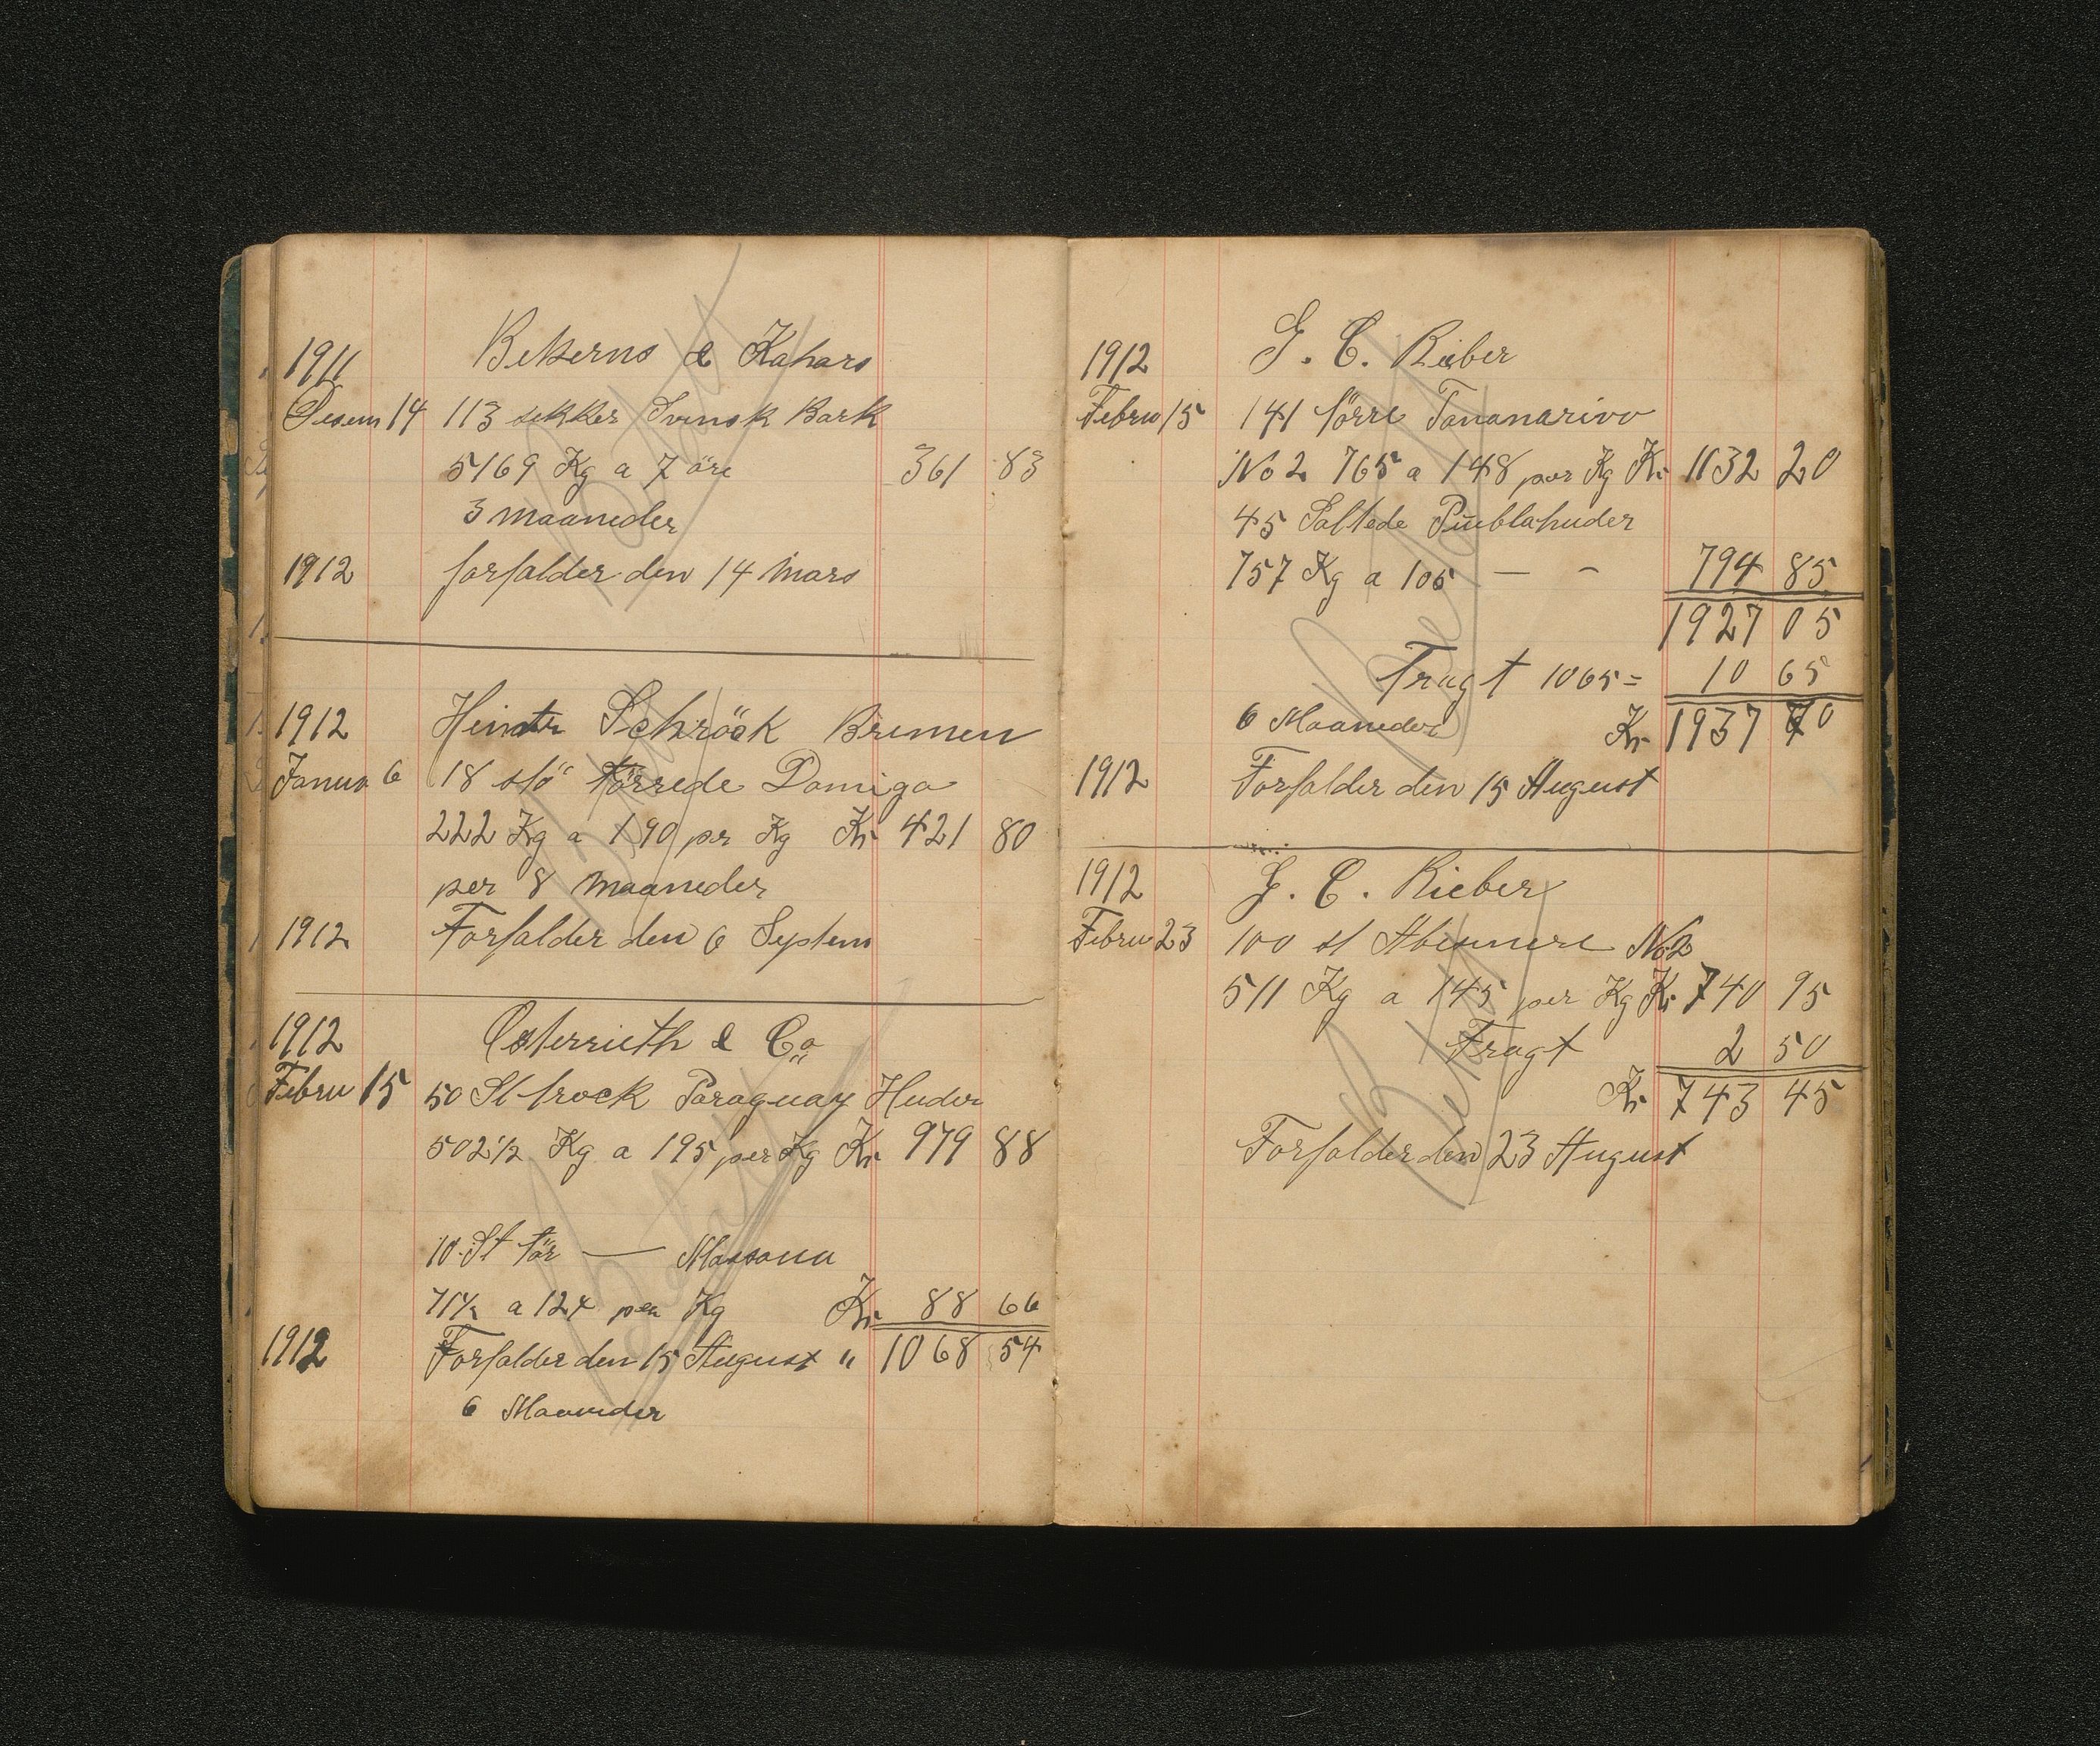 1911 Bekserns & Kahars
Desem 14 113 sekker Svensk Bark
5169 Kg a 7 öre 361 83
3 maaneder
1912 forfalder den 14 Mars
1912 Schröck Bremen
Janua 6 18 törrede Domigo
222 Kg a 190 per Kg Kr 421 80
per 8 maaneder
1912 Forfalder den 6 Septem
1912 Osterrieth & Co
Febru 15 50 St trock Paraguay Huder
502 1/2 Kg a 195 per Kg Kr 979 88
10 St tör — Massaua
71 1/2 a 124 per Kg Kr 88 66
1912 Forfalder den 15 August " 1068 54
6 Maaneder
Betalt
1912 G. C. Rieber
Febru 15 141 törre Tananarivo
No 2 765 a 148 per Kg Kr 1132 20
45 Saltede Pueblahuder
757 Kg a 105 — - 794 85
1927 05
Fragt 1065 = 10 65
6 Maaneder Kr 1937 70
1912 Forfalder den 15 August
1912 G. C. Rieber
Febru 23 100 st No 2
511 Kg a 145 per Kg Kr 740 95
Fragt 2 50
Kr 743 45
Forfalder den 23 August
Betalt